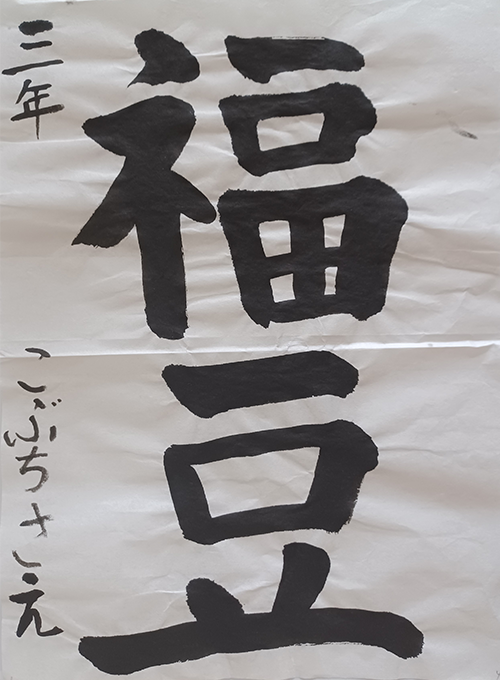 福豆
三年 こぶちさえ